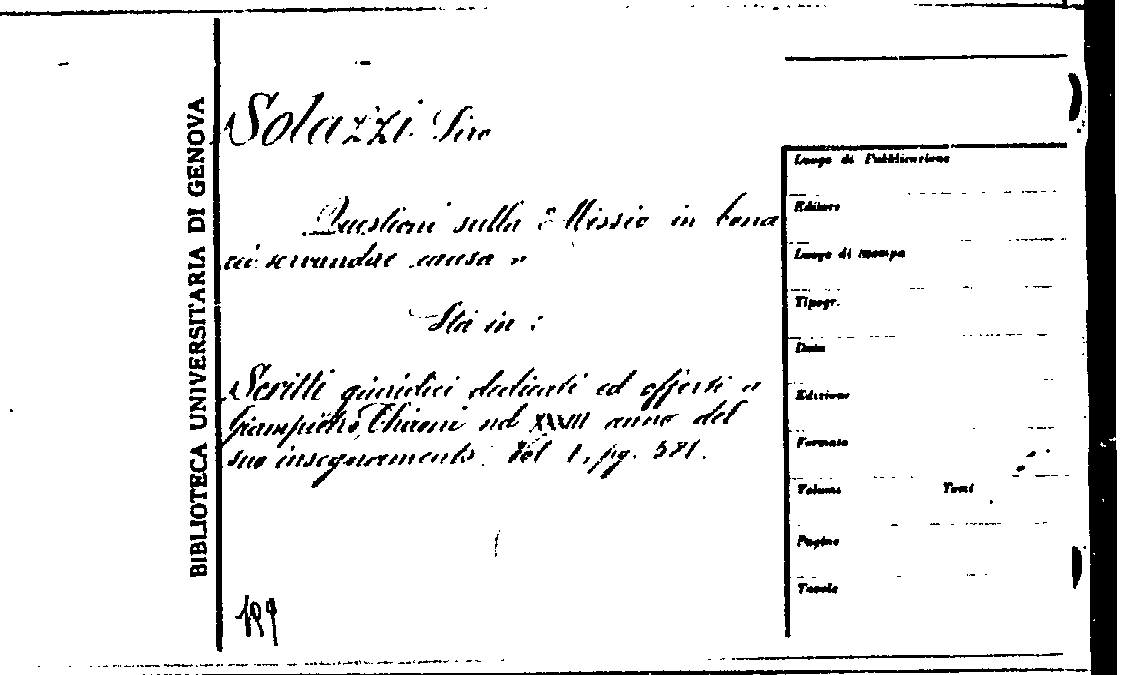 BIBLIOTECA UNIVERSITARIA DI GENOVA
Solazzi Siro
Questioni sulla "Missio in bona
rei servandae causa"
Sta in:
Scritti giuridici dedicati ed offerti a
Giampietro Chironi nel XXXIII anno del
suo insegnamento. Vol 1, pg. 571.
199
Luogo di Pubblicazione
Editore
Luogo di stampa
Tipogr.
Data
Edizione
Formato
Volume Tomi
Pagine
Tavole